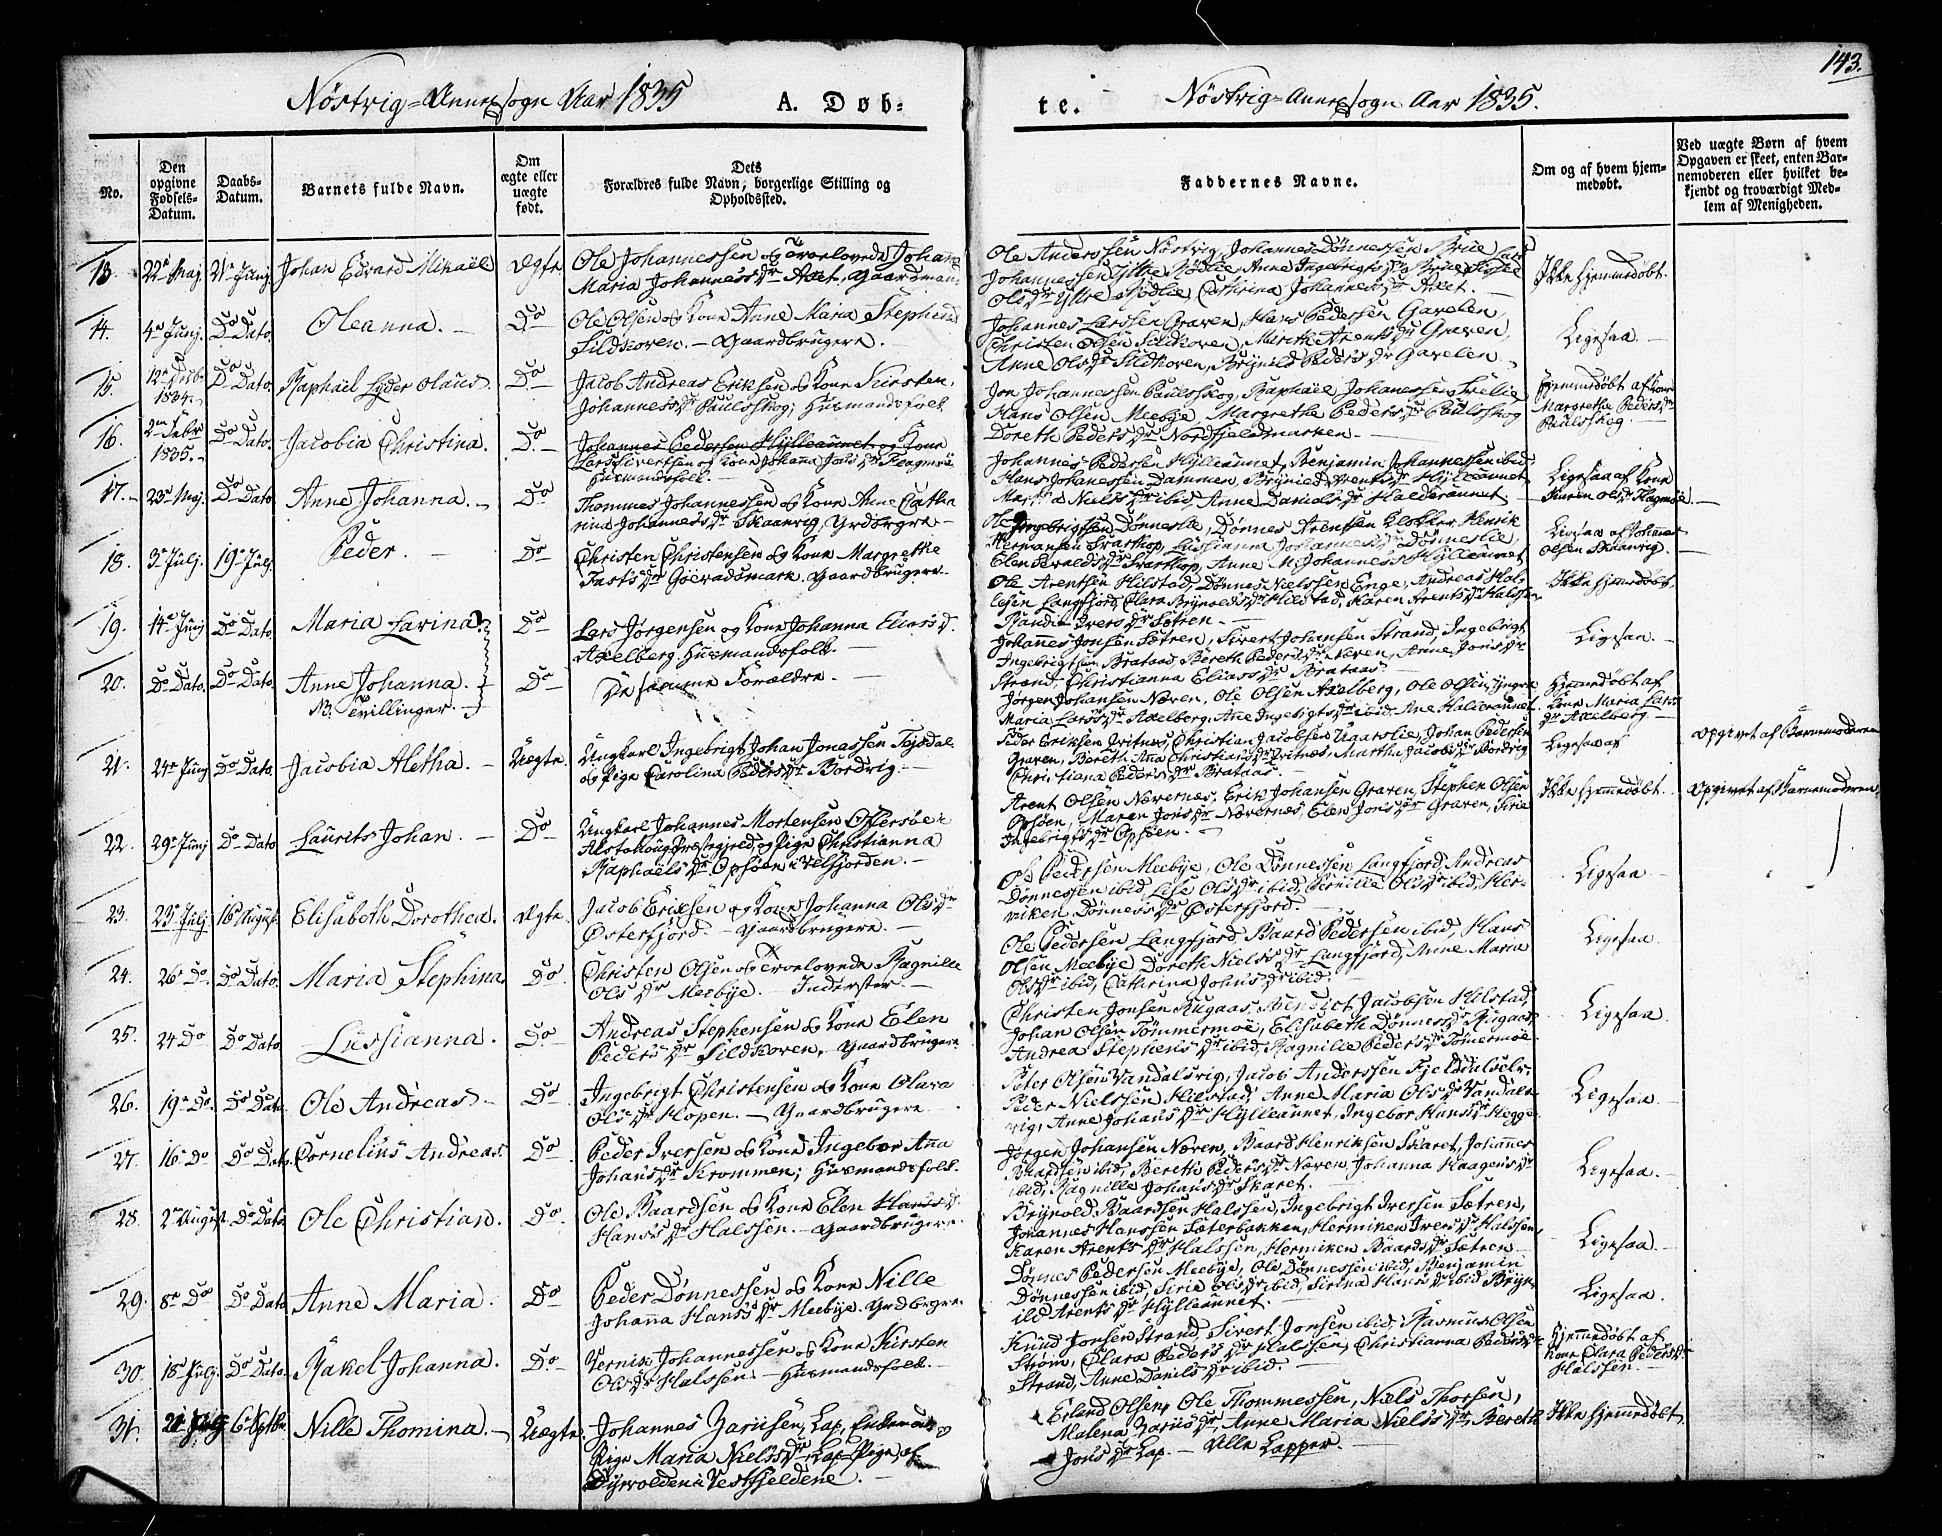 143.
Nöstvig=Annexsogn Aar 1835 A. Døb=
te. Nöstvig=Annexsogn Aar 1835.
No.
Den opgivne Fødsels-Datum.
Daabs-Datum.
Barnets fulde Navn.
Om ægte eller uægte født.
Dets Forældres fulde Navn, borgerlige Stilling og Opholdssted.
Faddernes Navne.
Om og af hvem hjemmedøbt.
Ved uægte Børn af hvem Opgaven er skeet, enten Barnemoderen eller hvilket bekjendt og troværdigt Medlem af Menigheden.
13. 22de Maj 21de Junj Johan Edvard Mikaël Ægte Ole Johannessen og Trolovede Johana
Maria Johannessdr Axet, Gaardmand
Ole Anderssen Nöstvig, Johannes Dönnessen Brue, Lars
Johannessen Yttre Mödlie, Anne Ingebrigtsdr Brue, Sissel
Olsdr Yttre Mödlie, Cathrina Johannesdr Axet.
Ikke hjemmedøbt.
14. 4de Junj Do Dato. Oleanna. Do Ole Olsen og Kone Anne Maria Stephensd
Sildskoven. — Gaardbrugere.
Johannes Larssen Graven, Hans Pedersen Gavelen,
Christen Olsen Sildkoven, Mirith Arentsdr Graven,
Anne Olsdr Sildkoven, Brynild Pedersdr Gavelen.
Ligesaa.
15. 12te Decb. 1834. Do Dato. Raphaël Lyder Olaus Do Jacob Andreas Eriksen og Kone Kirsten
Johannessdr Paulsskog; Huusmandsfolk
Jon Johannessen Paulsskog, Raphaël Johannessen
Hans Olsen Meebye, Margrethe Pedersdr Paulsskog
Doreth Pedersdr Nordfjeldmarken.
Hjemmedøbt af Kone
Margrethe Pedersdr
Paulsskog.
16. 2den Febr 1835. Do Dato. Jacobia Christina. Do Johannes Pedersen Hylleaunet og Kone
Lars Sivertsen og Kone Johanna Jonsdr Haagmoe
Huusmandsfolk.
Johannes Pedersen Hylleaunet, Benjamin Johannessen ibid,
Hans Johannessen Dammen, Brynild Arentsdr Hylleaunet
Martha Nielsdr ibid, Anne Danielsdr Halderaunet
Ligesaa af Kone
Karen Olsdr Hagmoe
17. 23de Maj. Do Dato Anne Johanna. Do Thommes Johannessen og Kone Anne Catha
rina Johannessdr Skaanvig, Grdbrgre
Ole Ingebrigtsen Dönneslie, Dönnes Arentsen Klokker, Henrik
Hermansen Svarthop, Lussianna Johannesdr Dönneslie,
Elen Evaldsdr Svarthop, Anne M. Johannesdr Hylleaunet
Ligesaa af Johannes
Olsen Skaanvig.
18. 3de Julj. 19de Julj. Peder. Do Christen Christensen og Kone Margrethe
Gaardbrugere
Ole Arentsen Hilstad, Dönnes Nielssen Enge, Andreas Hal-
lesen Langfjord, Clara Brynoldsdr Hilstad, Karen Arentsdr Halssen
Randie Iversdr Sætren.
Ikke hjemmedøbt
19. 14de Junj Do Dato. Maria Lavina Do Lars Jörgensen og Kone Johanna Eliasd.
Axelberg. Huusmandsfolk.
Johannes Jonsen Sætren, Sivert Johansen Strand, Ingebrigt
Ingebrigtsen Brataas, Bereth Pedersdr Næven, Anne Jonsdr
Strand, Christianna Eliasdr Brataas
Ligesaa.
20. Do Dato. Do Dato. Anne Johanna. Do De samme Forældre.
NB. Tvillinger.
Jörgen Johansen Næven, Ole Olsen Axelberg, Ole Olsen Yngre
Maria Larsdr Axelberg. Ane Ingebrigtsdr ibid. Ane Halderaunet.
Hjemmedøbt af
Kone Maria Lars
dr Axelberg.
21. 24de Junj Do Dato. Jacobia Aletha. Uægte. Ungkarl Ingebrigt Johan Jonassen
og Pige Carolina Pedersdr Bordvig.
Peder Eriksen Tvitnes, Christian Jacobsen Aaarslie, Johan Pedersen
Graven, Bereth Ana Christiansdr Tvitnes, Martha Jacobsdr Bordvig
Christiana Pedersdr Brataas.
Ligesaa af
Opgivet af Barnemoderen
22. 29de Junj Do Dato Laurits Johan. Do Ungkarl Johannes Mortensen Offersöe i
Alstahoug Præstegjeld, og Pige Christianna
Raphaelsdr Opsöen i Velfjorden.
Arent Olsen Nævernæs, Erik Johansen Graven, Stephen Olsen
Opsöen, Maren Jonsdr Nævernæs, Elen Jonsdr Graven, Siria
Ingebrigtsdr Opsöen.
Ikke hjemmedøbt.
Opgivet af Barnemoderen.
23. 23de Julj. 16de August. Elisabeth Dorothea. Ægte. Jacob Eriksen og Kone Johanna Olsdr
Österfjord. — Gaardbrugere.
Ole Pedersen Meebye, Ole Dönnessen Langfjord, Andreas
Dönnessen ibid, Lise Olsdr ibid, Pernille Olsdr ibid, Her-
miken Dönnesdr Österfjord.
Ligesaa
24. 26de Do. Do Dato Maria Stephina Do Christen Olsen og Trolovede Ragnille
Olsdr Meebye. — Inderster.
Ole Pedersen Langfjord, Baard Pedersen ibid, Hans
Olsen Meebye, Doreth Nielsdr Langfjord, Anne Maria
Olsdr ibid, Cathrina Johnsdr ibid.
Ligesaa.
25. 24 Do Do Dato Lussianna. Do Andreas Stephensen og Kone Elen
Pedersdr Sildskoven. Gaardbrugere.
Christen Jonsen Rugaas, Bendict Jacobsen Hilstad,
Johan Olsen Tömmermoe, Elisabeth Dönnesdr Rugaas,
Andrea Stephensdr ibid, Ragnille Pedersdr Tömermoe.
Ligesaa.
26. 19de Do. Do Dato. Ole Andreas Do. Ingebrigt Christensen og Kone Olava
Olsdr Hopen. — Gaardbrugere
Peter Olsen Vandalsvig, Jacob Anderssen Fjelddalselv,
Peder Nielssen Hilstad, Anne Maria Olsdr Vandals-
vig, Anne Johansdr Hylleaunet, Ingebor Hansdr Hegge
Ligesaa
27. 16de Do Do Dato. Cornelius Andreas. Do Peder Iversen og Kone Ingebor Ana
Johansdr Krommen; Huusmandsfolk.
Jörgen Johansen Næven, Baard Henriksen Skaret, Johannes
Baardsen ibid, Bereth Pedersdr Næven, Johanna Haagensdr
ibid, Ragnille Johansdr Skaret.
Ligesaa.
28. 2den August. Do Dato. Ole Christian. Do. Ole Baardsen og Kone Elen Hansd.
Hansdr Halssen. — Gaardbrugere.
Brynold Baardsen Halssen, Ingebrigt Iverssen Sætren,
Johannes Hanssen Sæterbakken, Hermiken Iversdr Halssen,
Karen Arentsdr Halssen, Hermiken Baardsdr Sætren.
Ligesaa.
29. 8de Do Do Dato Anne Maria. Do Peder Dönnessen og Kone Nille
Johanna Hansdr Meebye. Grdbrgre.
Dönnes Pedersen Meebye, Ole Dönnessen ibid, Benjamin
Dönnessen ibid, Siria Olsdr ibid, Sirina Hansdr ibid, Bryn-
ild Arentsdr Hylleaunet.
Ligesaa.
30. 18de Julj. Do Dato. Rakel Johanna. Do. Bernik Johannessen og Kone Kirsten
Olsdr Halssen. — Huusmandsfolk.
Knud Jonsen Strand, Sivert Jonsen ibid, Rasmus Olsen
Ström, Clara Pedersdr Halssen, Christianna Pedersdr
Strand, Anne Danilsdr ibid.
Hjemmedøbt af
Kone Clara Pedersdr
Halssen.
31. 21 Julj 6te Septbr. Nille Thomina. Uægte. Johannes Zariisen, Lap, og
Pige Maria Nielsdr, Lap-Pige af
Dyrvolden i Vestfjeldene.
Erland Olsen, Ole Thommessen, Niels Thorsen,
Malena Zariisdr, Anne Maria Nielsdr, Bereth
Jonsdr Lap. — Alle Lapper.
Ikke hjemmedøbt.